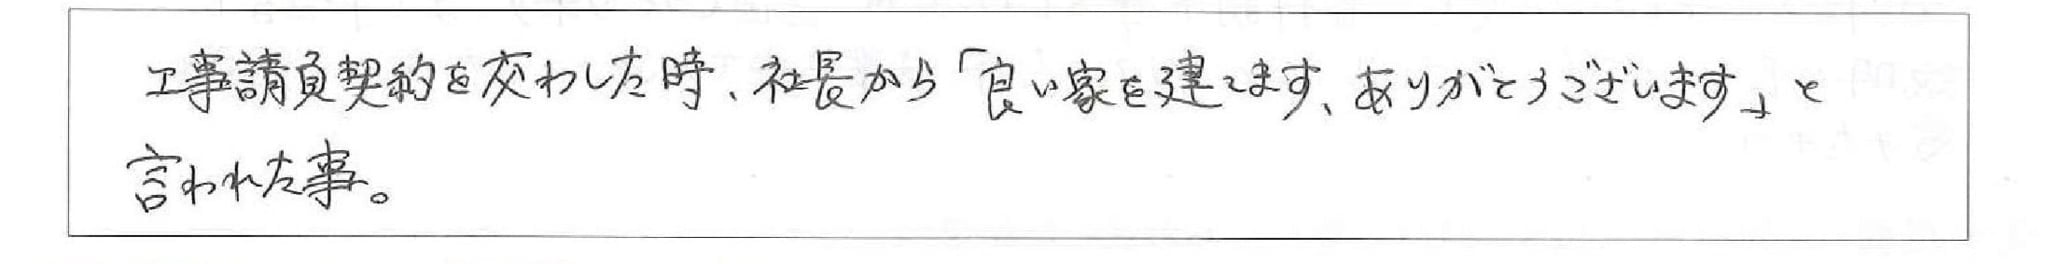 工事請負契約を交わした時、社長から「良い家を建てます、ありがとうございます」と
言われた事。